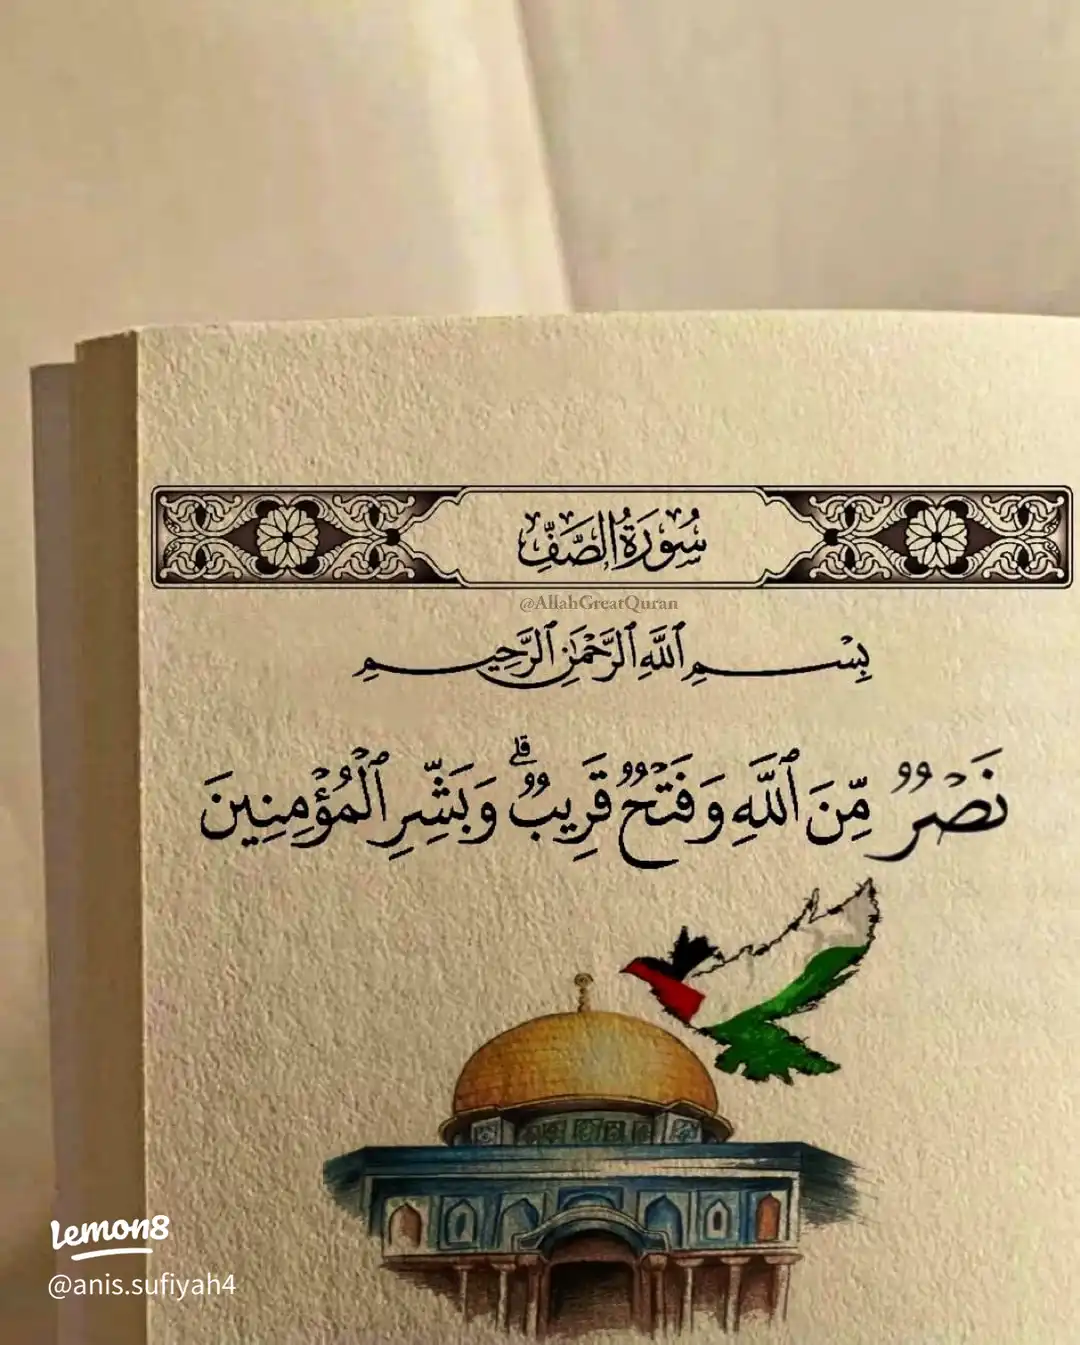 سُورَةُ الصَّفِّ
@AllahGreatQuran
بِسْمِ ٱللَّهِ ٱلرَّحْمَٰنِ ٱلرَّحِيمِ
نَصْرٌ مِّنَ ٱللَّهِ وَفَتْحٌ قَرِيبٌ ۗ وَبَشِّرِ ٱلْمُؤْمِنِينَ
lemon8
@anis.sufiyah4